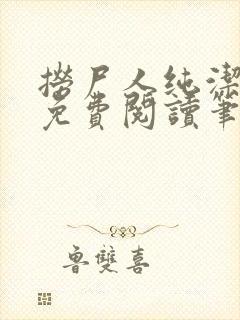 撈尸人純潔
免費閱讀筆
魯雙喜